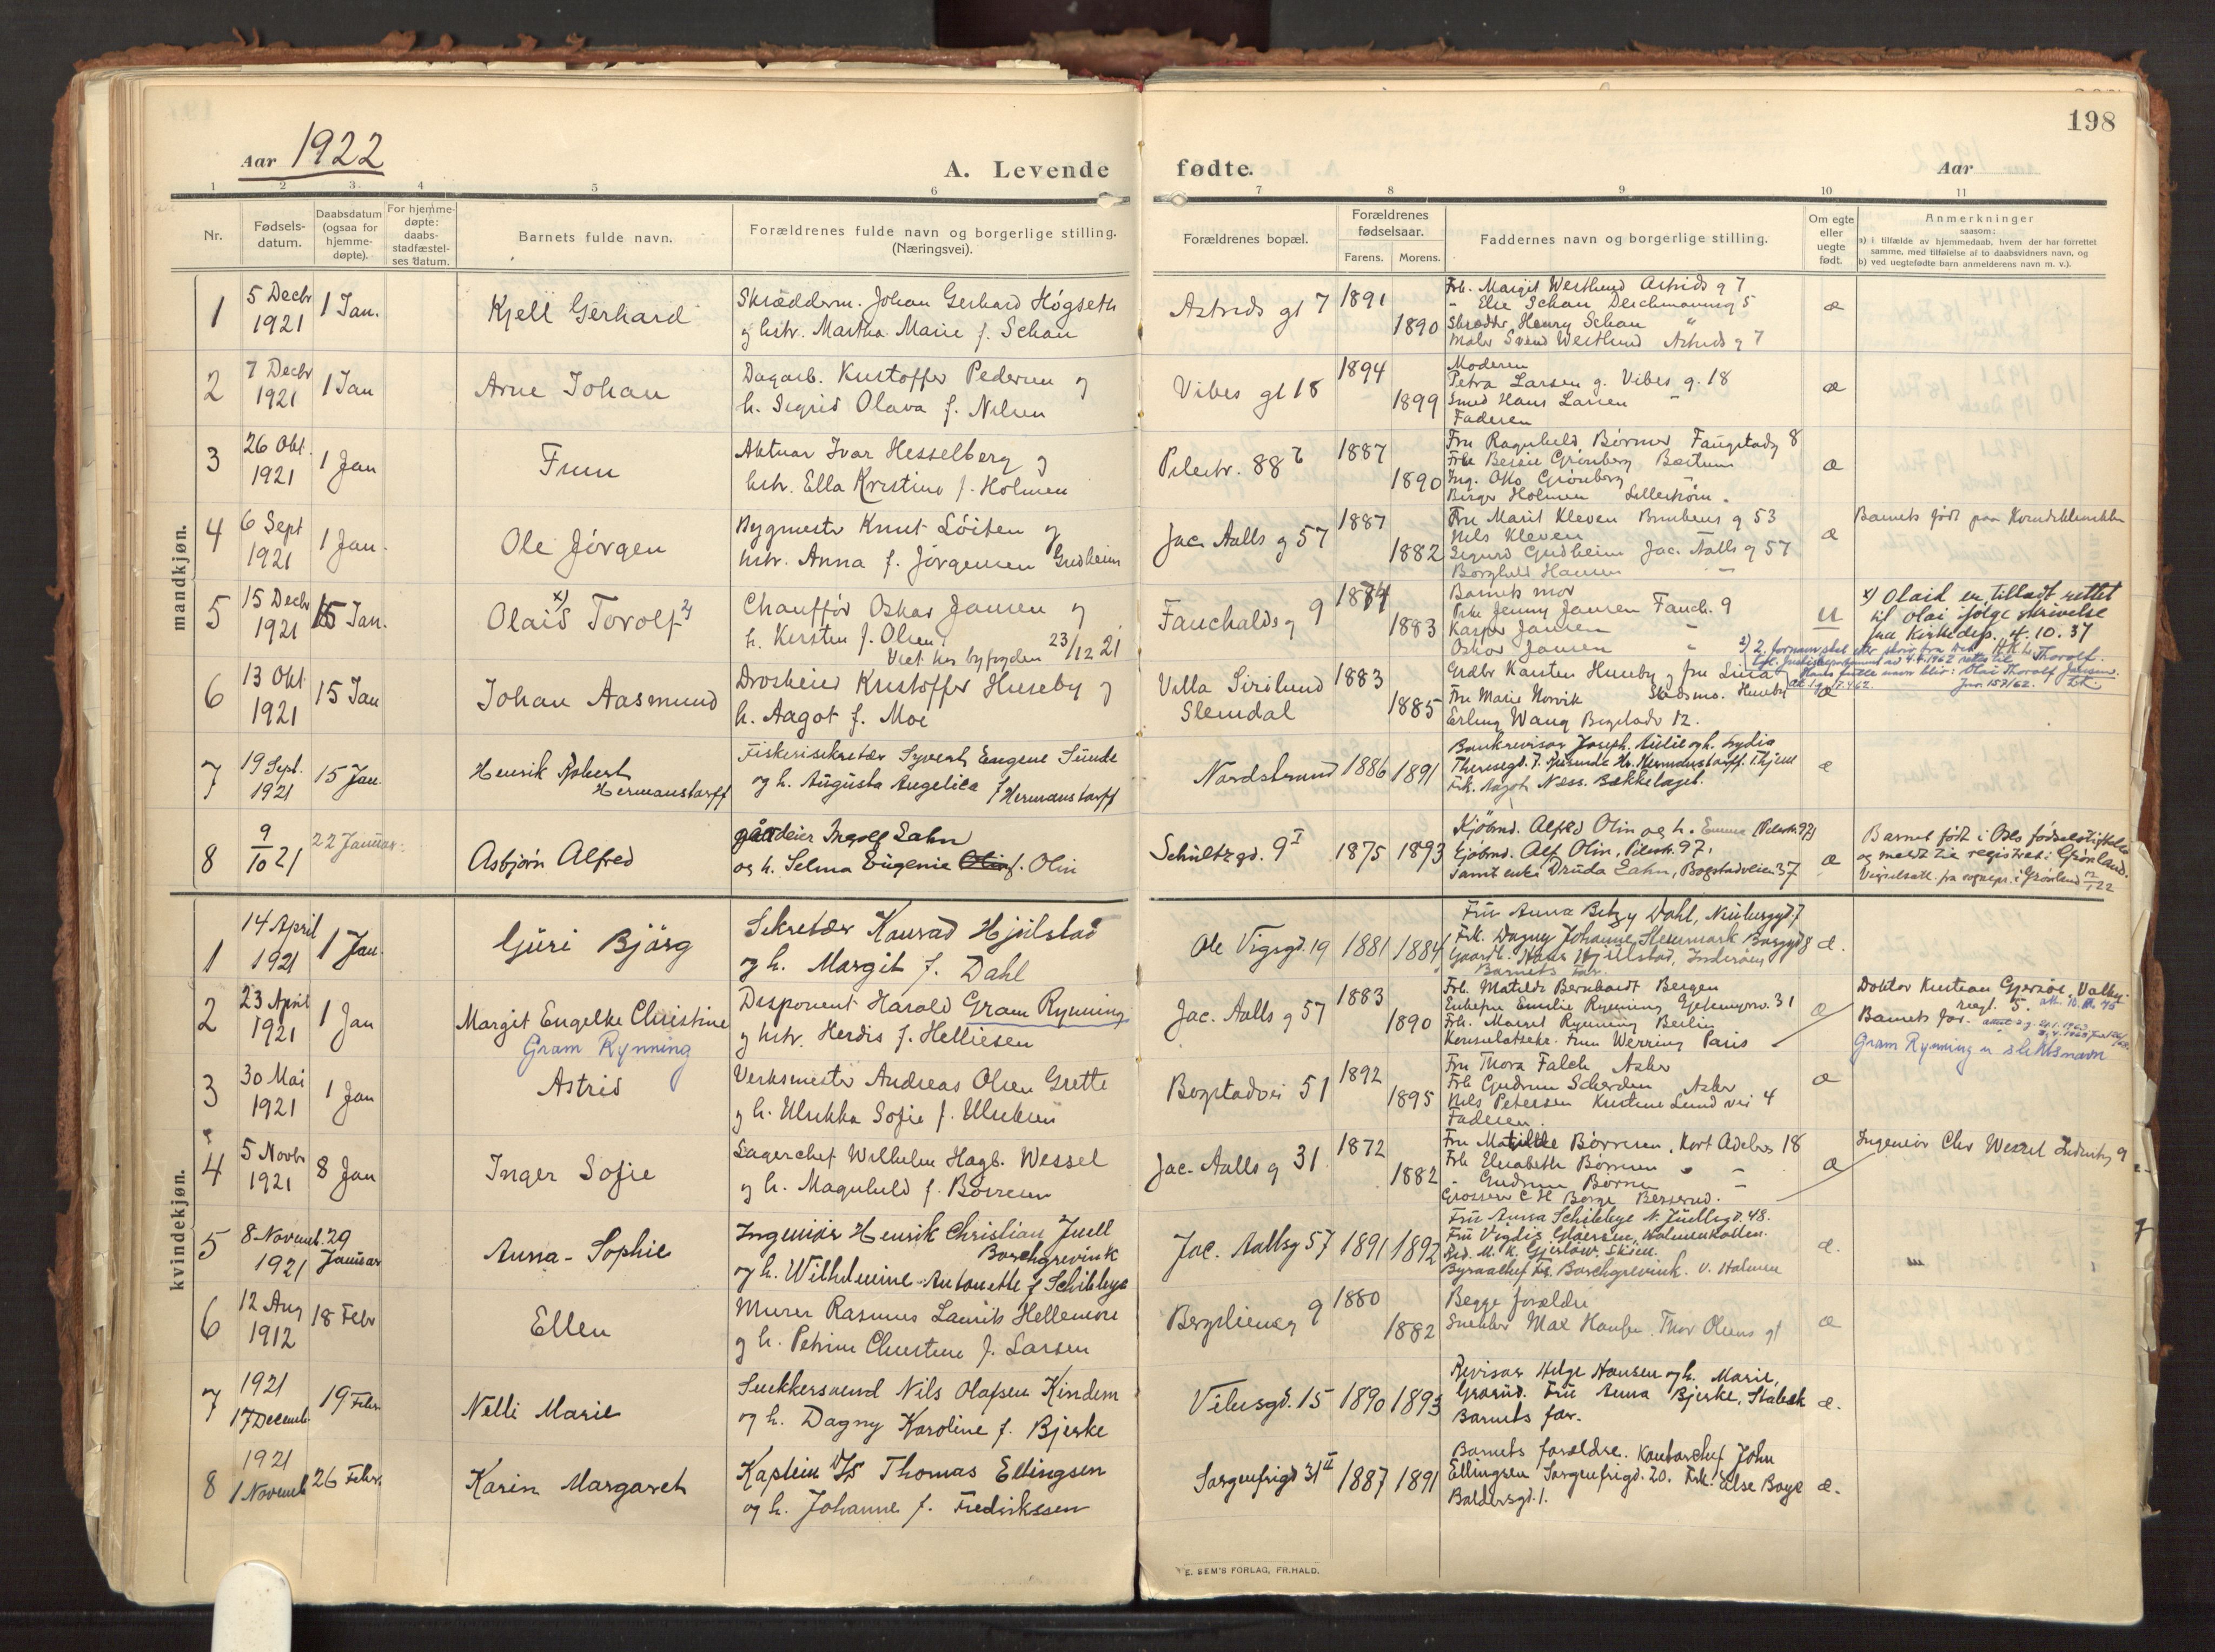 198
Aar 1922
A. Levende fødte.
Aar
1 2 3 4 5 6 7 8 9 10 11
Nr.
Fødsels-
datum.
Daabsdatum
(ogsaa for
hjemme-
døpte).
For hjemme-
døpte:
daabs-
stadfæstel-
ses datum.
Barnets fulde navn.
Forældrenes fulde navn og borgerlige stilling.
(Næringsvei).
Forældrenes bopæl.
Forældrenes
fødselsaar.
Farens. Morens.
Faddernes navn og borgerlige stilling.
Om egte
eller
uegte
født.
Anmerkninger
saasom:
a) i tilfælde av hjemmedaab, hvem der har forrettet
samme, med tilføielse af to daabsvidners navn, og
b) ved uegtefødte barn anmelderens navn m. v.).
mandkjøn.
1
5 Decbr
1921
1 Jan.
Kjell Gerhard
Skrædderm. Johan Gerhard Høgseth
og hstr. Martha Marie f. Schau
Astrids gt 7
1891
1890
Frk. Margit Westlund Astrids g 7
" Else Schau Deichmansg 5
Skrædder Henry Schau "
Maler Svend Westlund Astrids g 7
æ
2
7 Decbr
1921
1 Jan
Arne Johan
Dagarb. Kristoffer Pedersen og
h. Sigrid Olava f. Nilsen
Vibes gt 18
1894
1899
Moderen
Petra Larsen g. Vibes g. 18
Smed Hans Larsen "
Faderen
æ
3
26 Okt.
1921
1 Jan
Finn
Aktuar Ivar Hesselberg og
hstr. Ella Kristine f. Holmen
Pilestr. 88
1887
1890
Fru Ragnhild Børmer Faugstadg 8
Frk Bessie Grønberg Bærum
Ing. Otto Grønberg "
Birger Holmen Lillestrøm.
æ
4
6 Sept
1921
1 Jan.
Ole Jørgen
Bygmester Knut Løiten og
hstr. Anna f. Jørgensen Gudheim
Jac. Aalls g 57
1887
1882
Fru Marit Kleven
Nils Kleven
Sigurd Gudheim Jac. Aalls g 57
Borghild Hansen "
æ
Barnets født paa Kvindeklinikken
5
15 Decbr
1921
15 Jan.
Olaid x) Torolf 2)
Chauffør Oskar Jansen og
h. Kirsten f. Olsen.
Viet hos byfogden 23/12 21
Fauchalds g 9
1874
1883
Barnets mor
Frk Jenny Jansen Fauch. 9
Kasper Jansen "
Oskar Jansen "
u
x) Olaid er tilladt rettet
til Olai ifølge skrivelse
fra Kirkedep. 4.10.37
6
13 Okt
1921
15 Jan
Johan Aasmund
Droskeier Kristoffer Huseby og
h. Aagot f. Moe
Villa Sirilund
Slemdal
1883
1885
Grdbr Karsten Huseby og fru Lina
Fru Marie Norvik Skedsmo. Huseby
Erling Wang Bogstadv 12.
æ
7
19 Sept.
1921
15 Jan.
Henrik Robert
Hermanstorff
Fiskerisekretær Syvert Eugene Sunde
og h. Augusta Angelica f Hermanstorff
Nordstrand
1886
1891
Bankrevisor Joseph Aulie og h. Lydia
Frk. Aagot Næss. Bækkelaget.
æ
8
9/10 21
22 Januar.
Asbjørn Alfred
gårdeier Ingolf Lahn
og h. Selma Eugenie f. Olin
Schultzgd. 9 I
1875
1893
Kjøbmd. Alfred Olin og h. Emma (Pilestr. 97)
Kjøbmd. Alf Olin, Pilestr. 97,
samt enke Druda Lahn, Bogstadveien 37
æ
Barnet født i Oslo fødselsstiftelse
og meldt til registret i Grønland.
kvindekjøn.
1
14 April
1921
1 Jan.
Guri Bjørg
Sekretær Konrad Hjulstad
og h. Margit f. Dahl
Ole Vigsgd. 19
1881
1884
Fru Anna Betzy Dahl, Neubergd. 7
Gaardb. Hans Hjulstad, Inderøen
Barnets far.
æ.
2
23 April
1921
1 Jan
Margit Engelke Christine
Gram Rynning
Disponent Harald Gram Rynning
og hstr. Herdis f. Helliesen
Jac. Aalls g 57
1883
1890
Frk. Matilde Bernhardt Bergen
Enkefru Emilie Rynning 31
Frk. Margit Rynning Berlin
Konsulatsekr. Finn Werring Paris
æ
Doktor Kristian Gjersøe, Valby.
Barnets far.
Gram Rynning er slektsnavn
3
30 Mai
1921
1 Jan
Astrid
Verksmester Andreas Olsen Grette
og h. Ulrikka Sofie f. Ulriksen
Bogstadvei 51
1892
1895
Fru Thora Falch Asker
Frk Gudrun Scherden Asker
Nils Petersen Kristine Lund vei 4
Faderen.
æ
4
5 Novbr
1921
8 Jan
Inger Sofie
Lagerchef Wilhelm Hagb. Wessel
og h. Magnhild f. Børresen
Jac. Aalls g 31
1872
1882
Fru Matilde Børresen, Kort Adelers 18
Frk Elisabeth Børresen " "
" Gudrun Børresen "
Grosserer C H Borge Besserud.
æ
5
8 Novemb.
1921
29
Januar
Anna-Sophie
Ingeniør Henrik Christian Juell
Borchgrevink
og h. Wilhelmine Antonette f Schibbye
Jac. Aallsg 57
1891
1892
Fru Anna Schibbye N. Juellsgd. 48.
Fru Vigdis Gløersen, Holmenkollen.
Red. M. K. Gjerløw. Skien.
Byraachef Fr. Borchgrevink. V. Holmen
æ.
6
12 Aug
1912
18 Febr
Ellen
Murer Rasmus Laurits Hellemore
og h. Petrine Christine f. Larsen
Bergslieng 9
1880
1882
Begge forældre
Snekker Max Hansen. Thor Olsens gt
æ
7
1921
17 Decemb.
19 Febr.
Nelli Marie
Snekkersvend Nils Olafsen Kindem
og h. Dagny Karoline f. Bjerke
Vibesgd. 15
1890
1893
Revisor Helge Hansen og h. Marie,
Grorud. Fru Anna Bjerke, Stabæk
Barnets far.
æ.
8
1921
1 Novemb
26 Febr.
Karin Margareth
Kaptein D/S Thomas Ellingsen
og h. Johanne f. Fredrikssen
Sorgenfrigd 31 II
1887
1891
Barnets forældre. Kontorchef John
Ellingsen Sorgenfrigd. 20. Frk. Else Boye
Baldersgd. 1.
æ.
E. SEM'S FORLAG, FR.HALD.